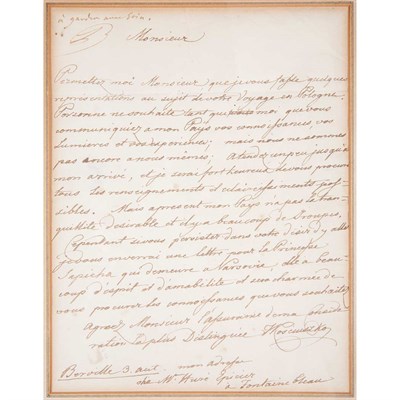 à garder avec soin.
Monsieur
Permettez moi Monsieur, que je vous fasse quelques
representations au sujet de votre voyage en Pologne.
Personne ne souhaite tant que moi que vous
communiquiez a mon Pays vos connoissances, vos
lumieres et vos experiences; mais nous ne sommes
pas encore a nous mêmes; Atendez un peu jusqu'a
mon arrivé, et je serai fort heureux de vous procurer
tous les renseignements et eclaircissements pos-
sibles. Mais apresent mon Pays n'a pas la tran-
quillité desirable et il y a beaucoup de Troupes.
Cependant si vous persistez dans votre desir d'y aller
je vous enverrai une lettre pour la Princesse
Sapieha qui demeure a Varsovie, elle a beau-
coup d'esprit et d'amabilité et sera charmée de
vous procurer les connoissances que vous souhaitez
Agreez Monsieur l'assurance de ma conside-
ration la plus Distinguée Kosciuszko
Berville 3. aut. mon adresse
che Mr. Epicier
a Fontainebleau